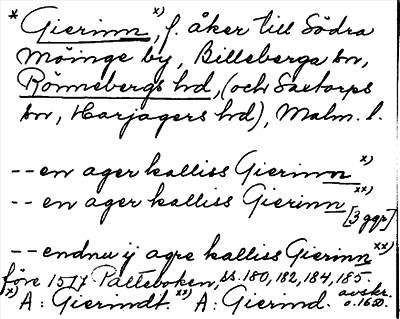 * Gierinn x), f. åker till Södra
Möinge by, Billeberga sn,
Rönnebergs hd, (och Saxtorps
sn, Harjagers hd), Malm. l.
-- en ager kalliss Gierinn x)
-- en ager kalliss Gierinn xx)
[3 ggr]
-- endnu ij agre kalliss Gierinn xx)
före 1517 Palteboken, ss. 180, 182, 184, 185.
x) A: Gierindt. xx) A: Gierind. avskr.
o. 1650.